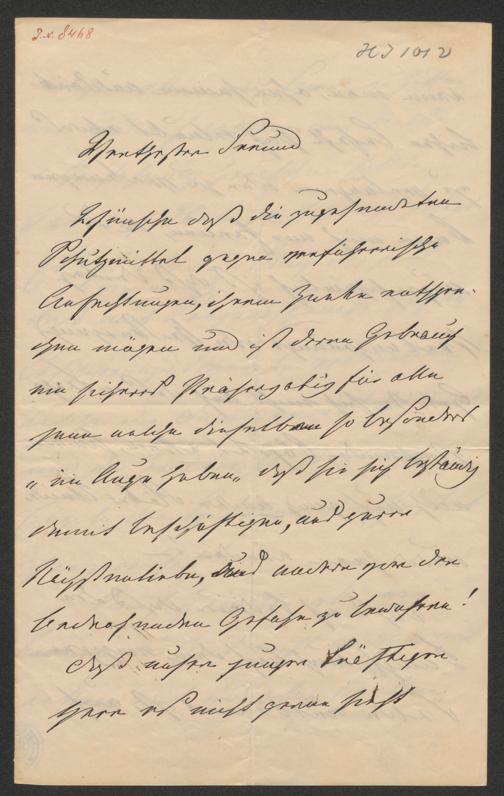 I.N. 8468
HJ 1012
Werthester Freund
Wünsche daß die zugesendeten
Schutzmittel gegen verführerische
Anfechtungen, ihrem Zwecke entspre-
chen mögen und ist deren Gebrauch
ein sicheres für alle
jene welche dieselben so besonders
"im Auge haben" daß sie sich beständig
damit beschäftigen, und zwar
Nächstenliebe, und andere vor der
bedrohenden Gefahr zu bewahren!
daß unser junger kräftiger
Herr es nicht gerne sieht